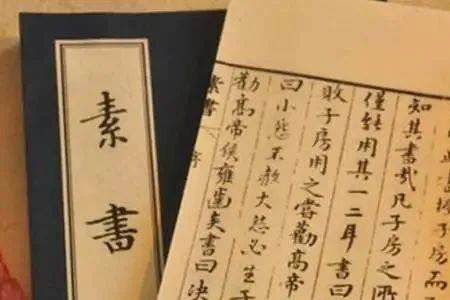 子房而
知其書哉凡子房之所
僅能用其一二耳書曰
敗子房用之嘗勸高帝
曰小怨不赦大怨必生子
勸高帝侯雍齒矣書曰決
素書 序
素書